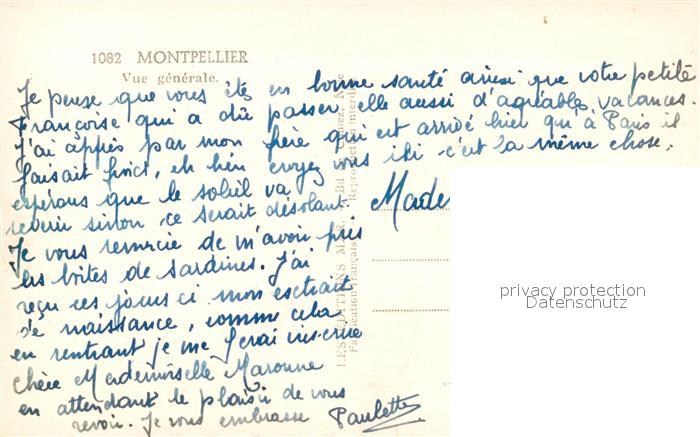 1082 MONTPELLIER
Vue générale.
Je pense que vous êtes en bonne santé ainsi que votre petite
Françoise qui a dû passer elle aussi d'agréables vacances.
J'ai appris par mon frère qui est arrivé hier qu'à Paris il
faisait froid, eh bien croyez vous ici c'est la même chose,
espérons que le soleil va
revenir sinon ce serait désolant.
Je vous remercie de m'avoir pris
les boîtes de sardines. J'ai
reçu ces jours ci mon extrait
de naissance, comme cela
en rentrant je me ferai inscrire
Chère Mademoiselle Maronne
en attendant le plaisir de vous
revoir. Je vous embrasse Paulette
Made
LES EDITIONS MAR
Fabrication Française
Reproduction interdite
privacy protection
Datenschutz